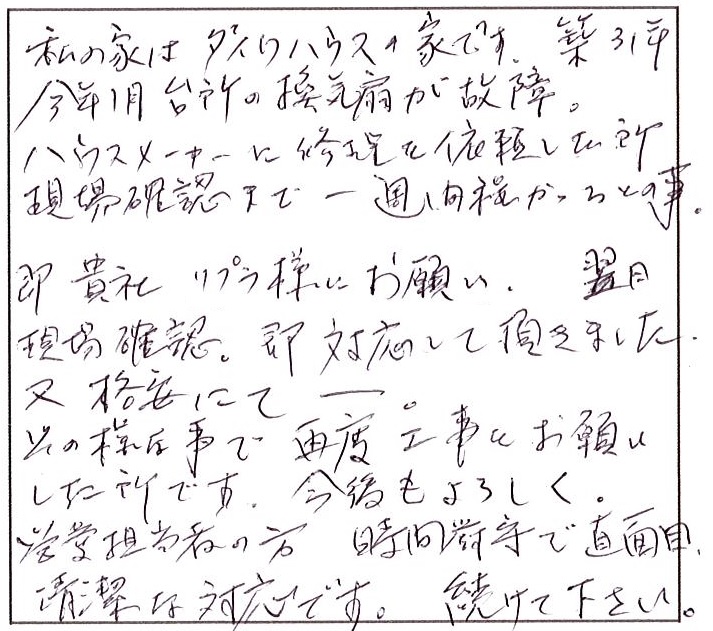 私の家はダイワハウスの家です。築31年
今年1月台所の換気扇が故障。
ハウスメーカーに修理を依頼した所
現場確認まで一週間程かかるとの事。
即貴社リプラ様にお願い。翌日
現場確認。即対応して頂きました。
又格安にて―。
その様な事で再度工事をお願い
した所です。今後もよろしく。
営業担当者の方 時間厳守で真面目、
清潔な対応です。続けて下さい。